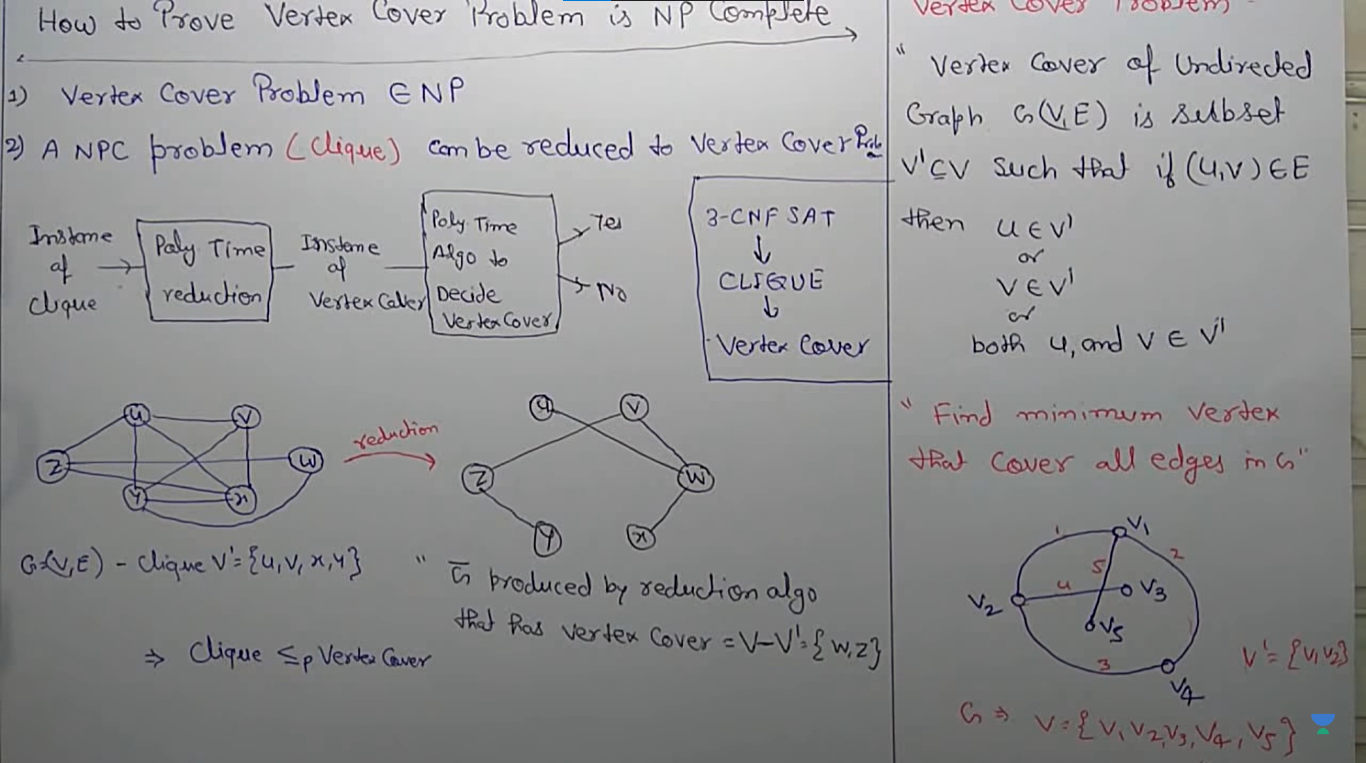 How to Prove Vertex Cover Problem is NP Complete
1) Vertex Cover Problem ∈ NP
2) A NPC problem (Clique) can be reduced to Vertex Cover Prob
Instance of Clique
Poly Time reduction
Instance of Vertex Cover
Poly Time Algo to Decide Vertex Cover
Yes
No
3-CNF SAT
↓
CLIQUE
↓
Vertex Cover
u v
z w
y x
reduction
u v
z w
y x
G(V,E) - Clique V'={u,v,x,y}
⇒ Clique ≤p Vertex Cover
" G̅ produced by reduction algo
that has vertex cover = V-V'={w,z}
Vertex Cover Problem -
" Vertex Cover of Undirected
Graph G(V,E) is subset
V'⊆V such that if (u,v)∈E
then u∈V'
or
v∈V'
or
both u, and v ∈ V'
" Find minimum vertex
that cover all edges in G"
1 V1
2
5
V2 4 V3
V5
3
V4
V'= {V1,V2}
G ⇒ V={V1,V2,V3,V4,V5}